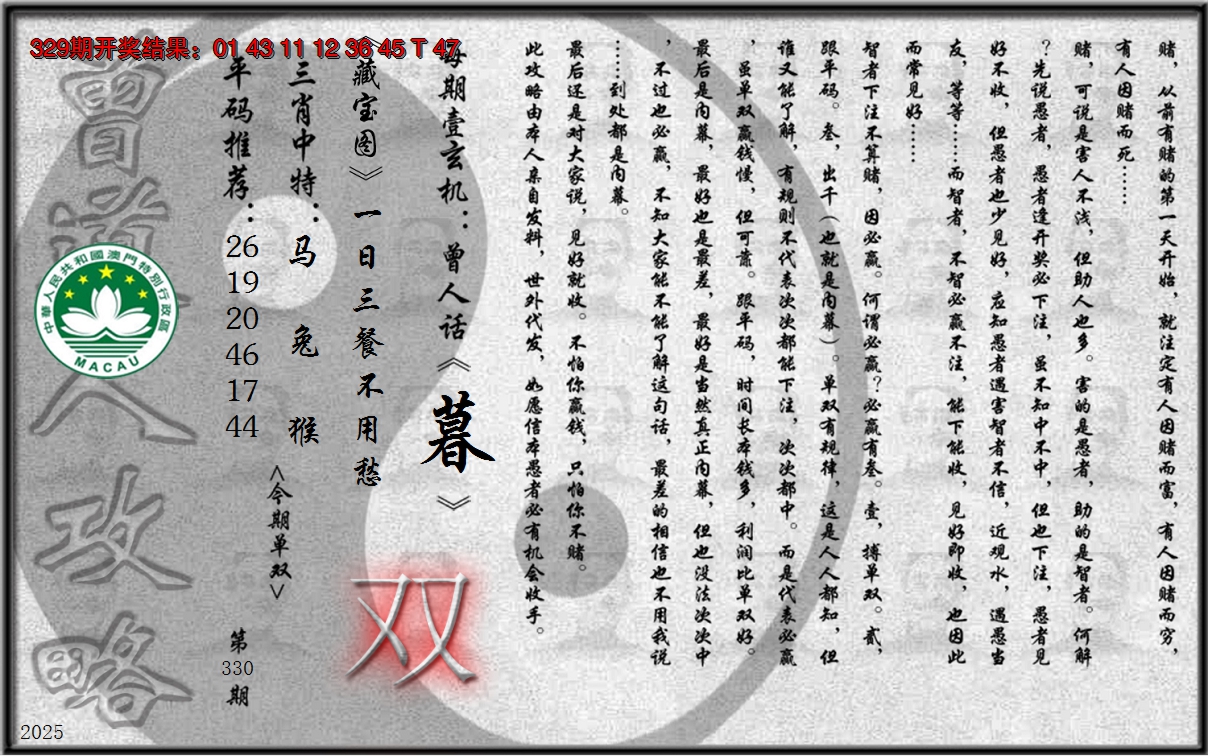 329期开奖结果：01 43 11 12 36 45 T 47
赌，从前有赌的第一天开始，就注定有人因赌而富，有人因赌而穷，
有人因赌而死……
赌，可说是害人不浅，但助人也多。害的是愚者，助的是智者。何解
？先说愚者，愚者逢开奖必下注，虽不知中不中，但也下注，愚者见
好不收，但愚者也少见好，应知愚者遇害智者不信，近观水，遇愚当
友，等等……而智者，不智必赢不注，能下能收，见好即收，也因此
而常见好……
智者下注不算赌，因必赢。何谓必赢？必赢有叁。壹，搏单双。贰，
跟平码。叁，出千（也就是内幕）。单双有规律，这是人人都知，但
谁又能了解，有规则不代表次次都能下注，次次都中。而是代表必赢
，虽单双赢钱慢，但可靠。跟平码，时间长本钱多，利润比单双好。
最后是内幕，最好也是最差，最好是当然真正内幕，但也没法次次中
，不过也必赢，不知大家能不能了解这句话，最差的相信也不用我说
……到处都是内幕。
最后还是对大家说，见好就收。不怕你赢钱，只怕你不赌。
此攻略由本人亲自发料，世外代发，如愿信本愚者必有机会收手。
每期壹玄机：曾人话《暮》
《藏宝图》一日三餐不用愁
双
三肖中特：马 兔 猴
<今期单双>
平码推荐：
26
19
20
46
17
44
第
330
期
曾道人攻略
中華人民共和國澳門特別行政區
MACAU
2025